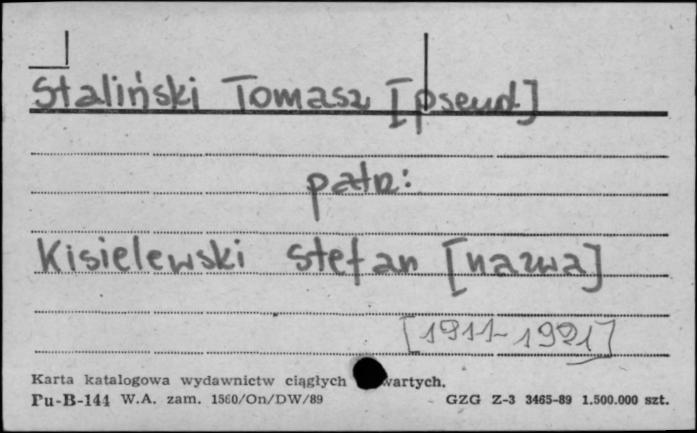 Staliński Tomasz [pseud]
patrz:
Kisielewski Stefan [nazwa]
[1911-1991]
Karta katalogowa wydawnictw ciągłych wartych.
Pu-B-144 W.A. zam. 1560/On/DW/89 GZG Z-3 3465-89 1.500.000 szt.